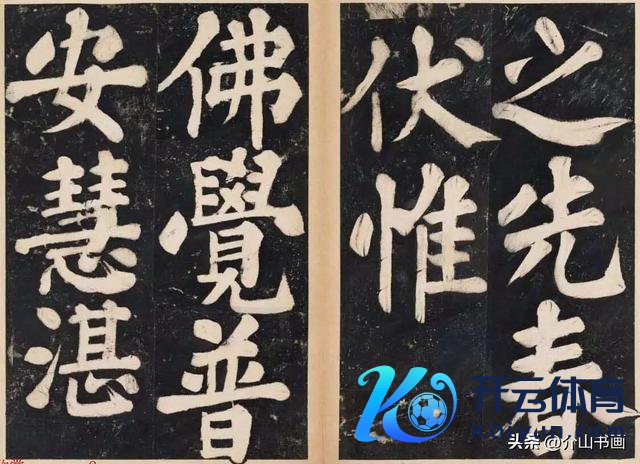 之先
伏惟
佛覺普
安慧湛
开云体育
头条 @介山书画